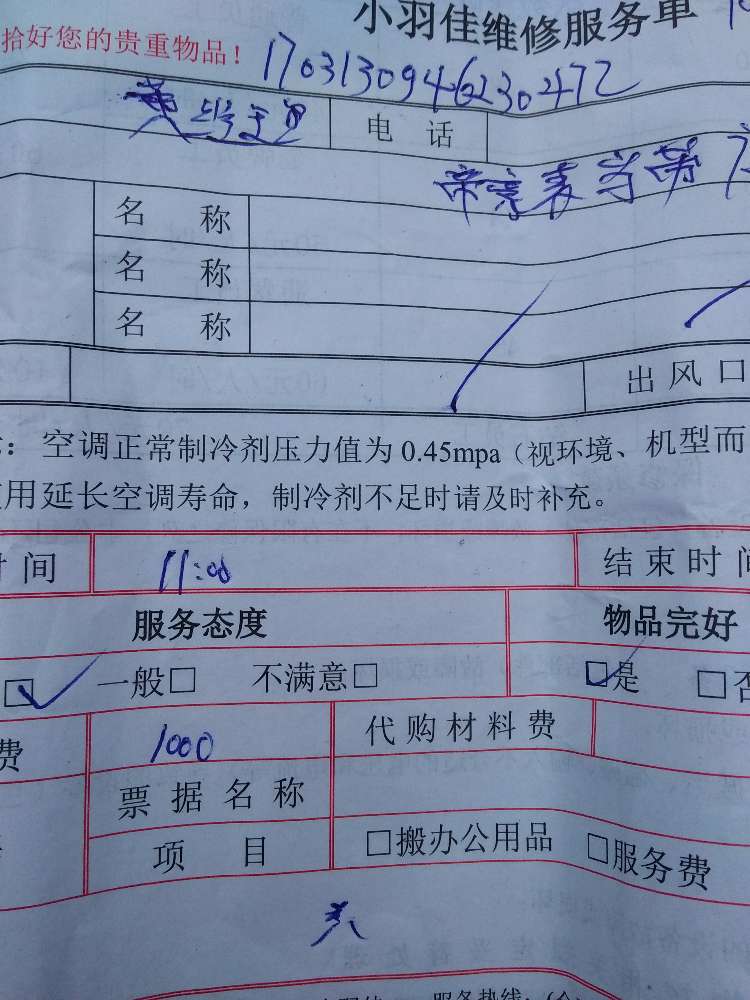 小羽佳维修服务单
拾好您的贵重物品！
17031309466230472
电话
名称
名称
名称
出风口
：空调正常制冷剂压力值为 0.45mpa（视环境、机型而
用延长空调寿命，制冷剂不足时请及时补充。
时间 11:00 结束时间
服务态度 物品完好
□ 一般□ 不满意□ □是 □否
费 1000 代购材料费
票据名称
项目 □搬办公用品 □服务费
服务热线：